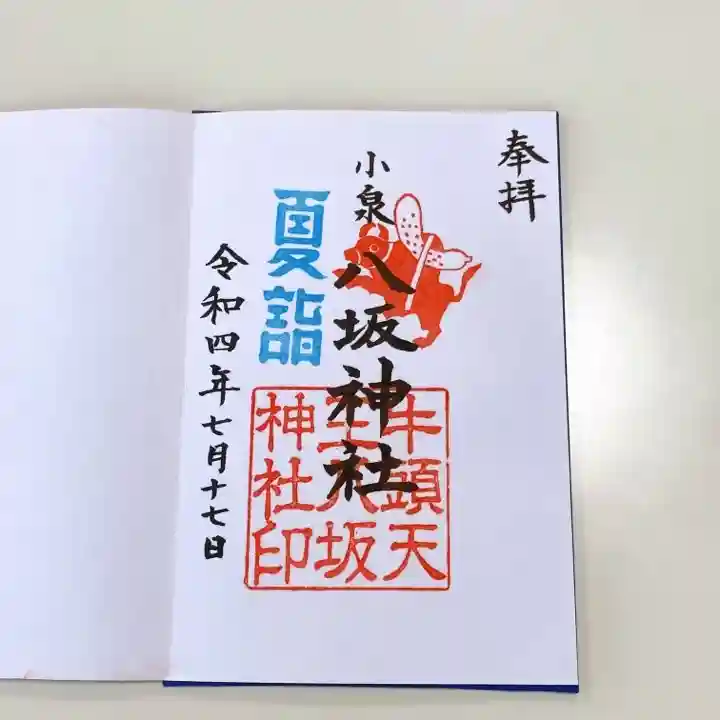 奉拝
小泉
八坂神社
夏詣
令和四年七月十七日
牛頭天
王八坂
神社印